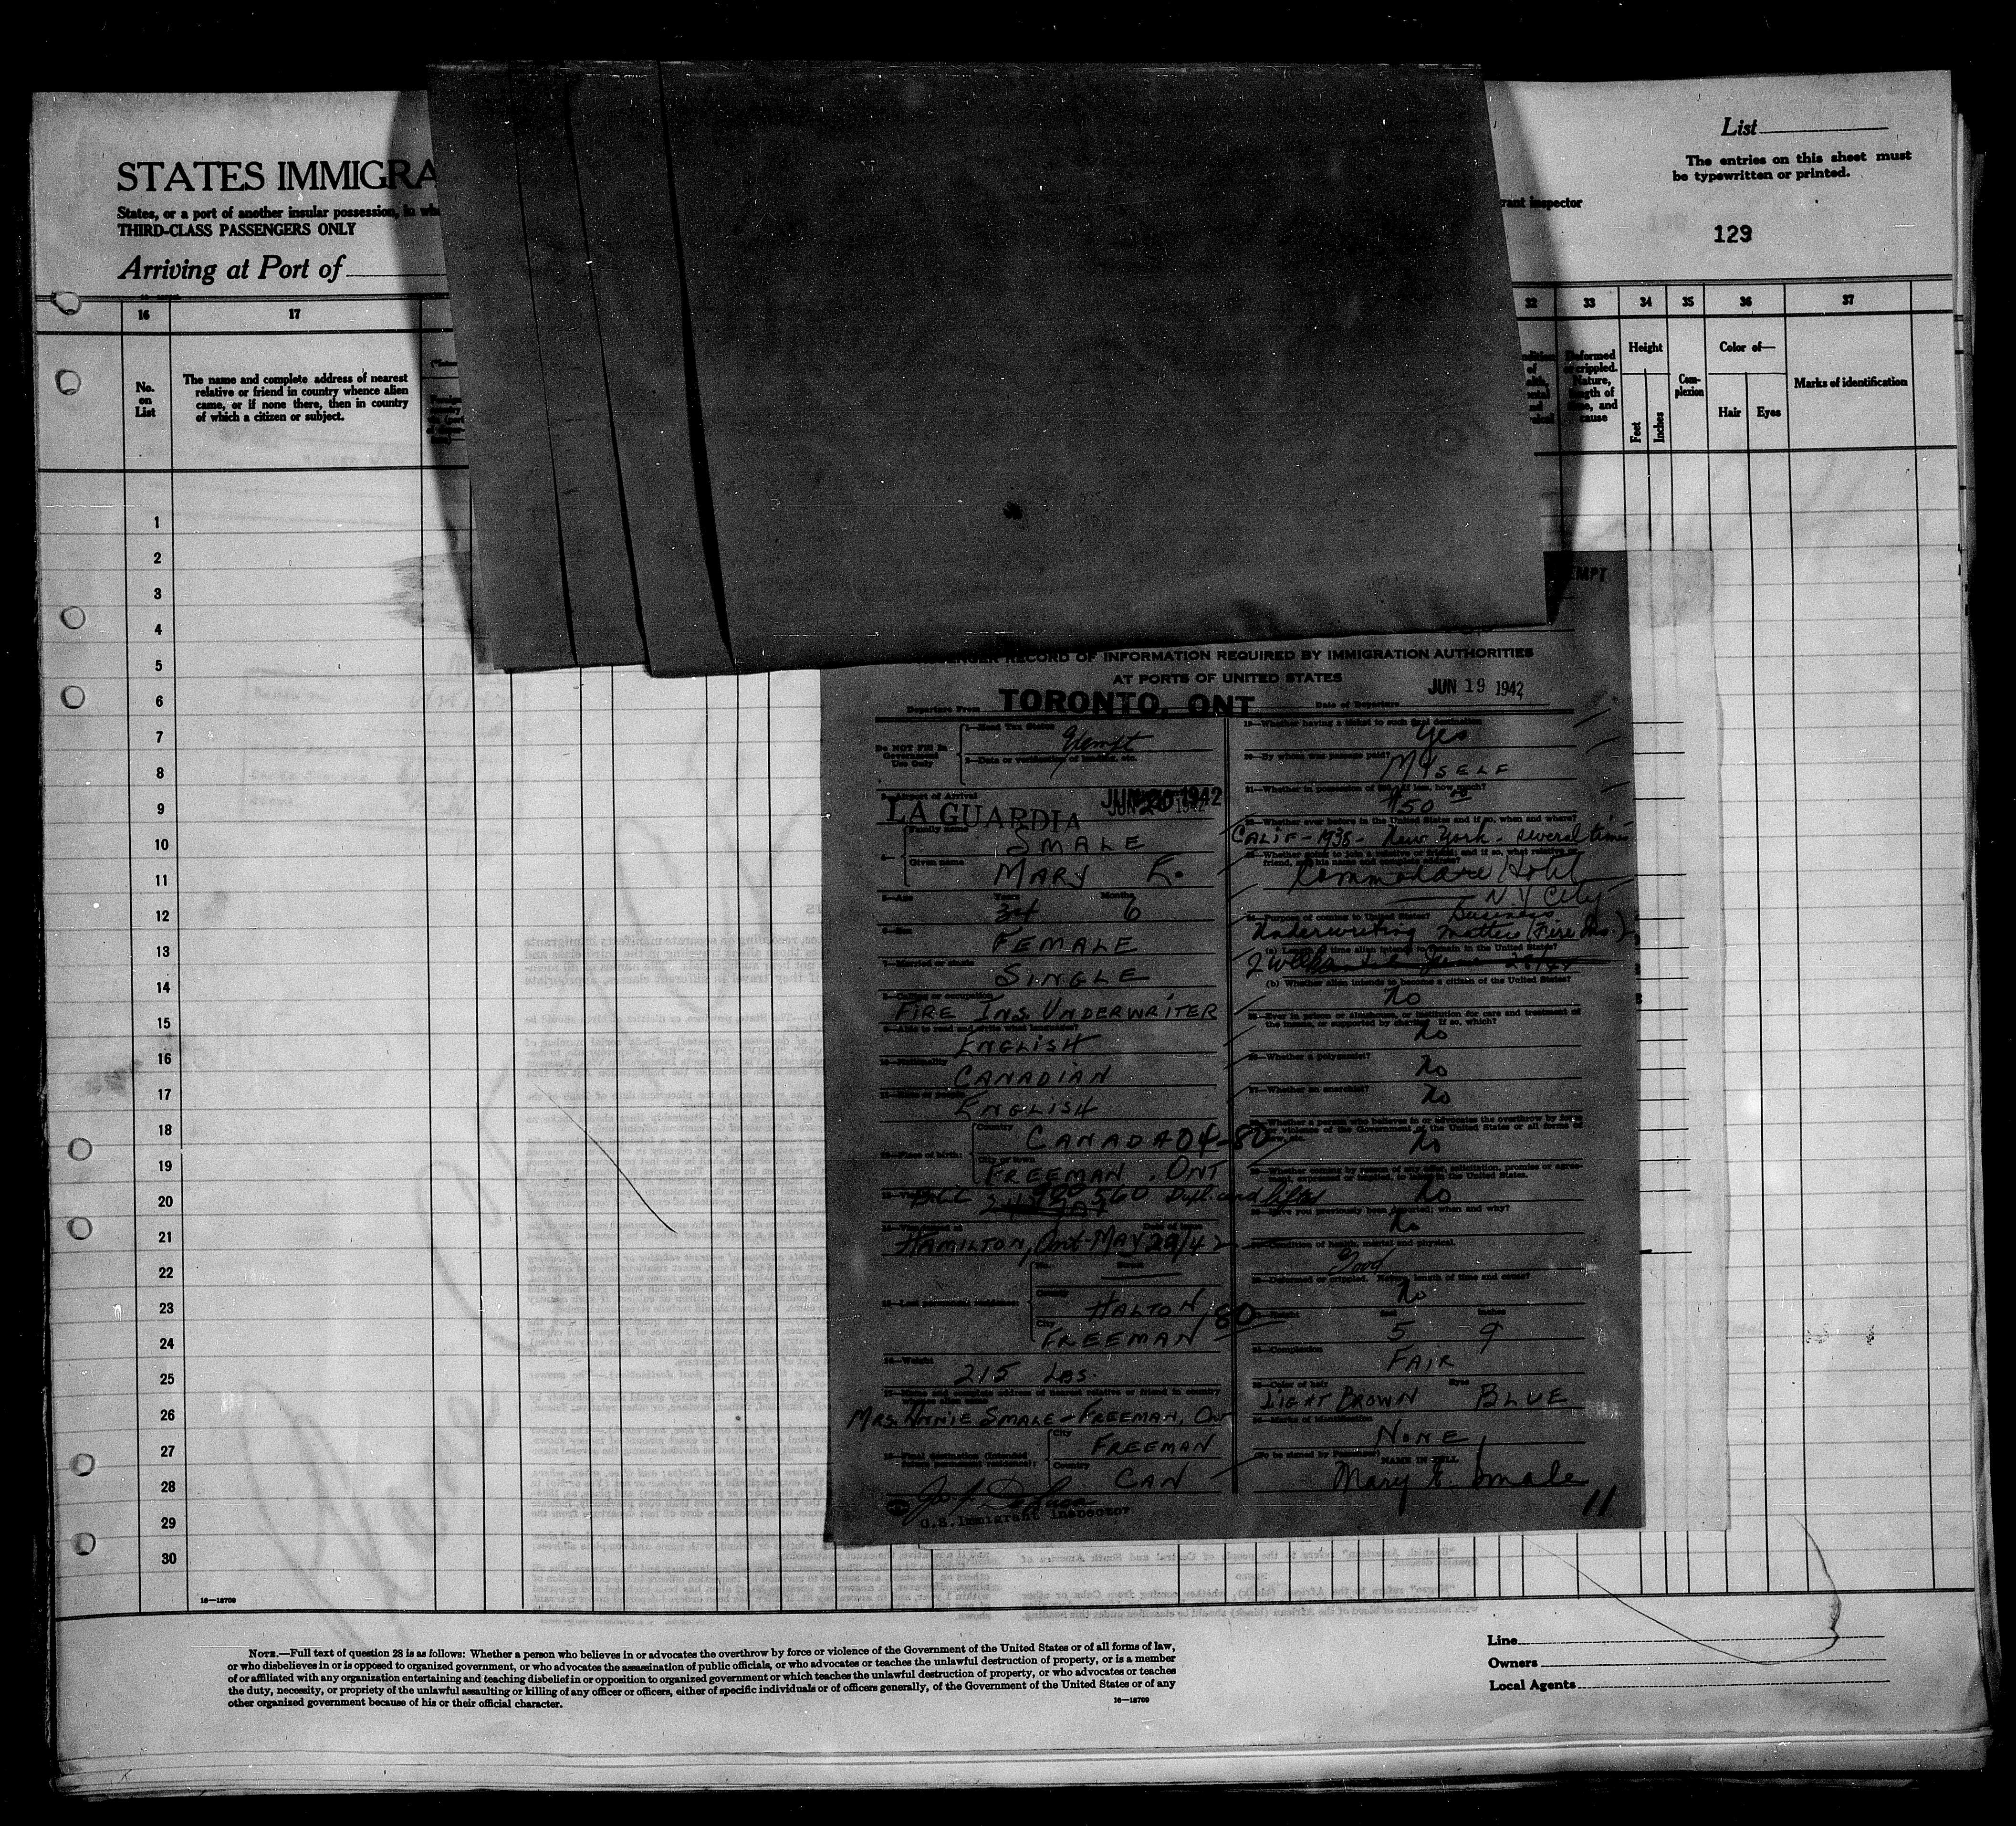 STATES IMMIGRA
States, or a port of another insular possession, in
THIRD-CLASS PASSENGERS ONLY
Arriving at Port of
List
The entries on this sheet must
be typewritten or printed.
rant inspector
129
16
17
32
33
34
35
36
37
No.
on
List
The name and complete address of nearest
relative or friend in country whence alien
came, or if none there, then in country
of which a citizen or subject.
Deformed
or crippled.
Nature,
length of
time, and
cause
Height
Feet
Inches
Com-
plexion
Color of—
Hair
Eyes
Marks of identification
1
2
3
4
5
6
7
8
9
10
11
12
13
14
15
16
17
18
19
20
21
22
23
24
25
26
27
28
29
30
EMPT
RECORD OF INFORMATION REQUIRED BY IMMIGRATION AUTHORITIES
AT PORTS OF UNITED STATES
JUN 19 1942
Departure From TORONTO, ONT
Date of Departure
Do NOT Fill In
Government
Use Only
1—Head Tax Status
Exempt
2—Date or verification of landing, etc.
3—Airport of Arrival
LA GUARDIA JUN 20 1942
4—
Family name
SMALE
Given name
MARY E.
5—Age Years Months
34 6
6—Sex
FEMALE
7—Married or single
SINGLE
8—Calling or occupation
FIRE INS. UNDERWRITER
9—Able to read and write what languages?
ENGLISH
10—Nationality
CANADIAN
11—Race or people
ENGLISH
12—Place of birth:
Country
CANADA 04-80
City or town
FREEMAN, ONT
560
Date of issue
HAMILTON, Ont - MAY 29/42
No. Street
15—Last permanent residence:
County
HALTON
City
FREEMAN 80
16—Weight
215 LBS.
17—Name and complete address of nearest relative or friend in country
whence alien came
MRS. ANNIE SMALE - FREEMAN, ON
18—Final destination (intended
future permanent residence):
City
FREEMAN
Country
CAN
U.S. Immigrant Inspector
19—Whether having a ticket to such final destination
Yes
20—By whom was passage paid?
MYSELF
21—Whether in possession of $50, if less, how much?
$50 00
22—Whether ever before in the United States and if so, when and where?
CALIF - 1938 - New York - several times
23—Whether going to join a relative or friend; and if so, what relative or
friend, and his name and complete address?
Commodore Hotel
N.Y City
24—Purpose of coming to United States? Business
Underwriting matters (Fire Ins.)
(a) Length of time alien intends to remain in the United States?
(b) Whether alien intends to become a citizen of the United States?
No
25—Ever in prison or almshouse, or institution for care and treatment of
the insane, or supported by charity? If so, which?
No
26—Whether a polygamist?
No
27—Whether an anarchist?
No
Whether a person who believes in or advocates the overthrow by force
or violence of the Government of the United States or all forms of
law, etc.
No
29—Whether coming by reason of any offer, solicitation, promise or agree-
ment, expressed or implied, to labor in the United States.
No
30—Have you previously been deported; when and why?
No
31—Condition of health, mental and physical.
Good
32—Deformed or crippled. Nature, length of time and cause?
No
33—Height feet inches
5 9
34—Complexion
FAIR
35—Color of hair Eyes
LIGHT BROWN BLUE
36—Marks of identification
NONE
(To be signed by Passenger) NAME IN FULL
Mary E. Smale
11
16—18709
NOTE.—Full text of question 28 is as follows: Whether a person who believes in or advocates the overthrow by force or violence of the Government of the United States or of all forms of law,
or who disbelieves in or is opposed to organized government, or who advocates the assassination of public officials, or who advocates or teaches the unlawful destruction of property, or is a member
of or affiliated with any organization entertaining and teaching disbelief in or opposition to organized government or which teaches the unlawful destruction of property, or who advocates or teaches
the duty, necessity, or propriety of the unlawful assaulting or killing of any officer or officers, either of specific individuals or of officers generally, of the Government of the United States or of any
other organized government because of his or their official character.
16—18709
Line
Owners
Local Agents